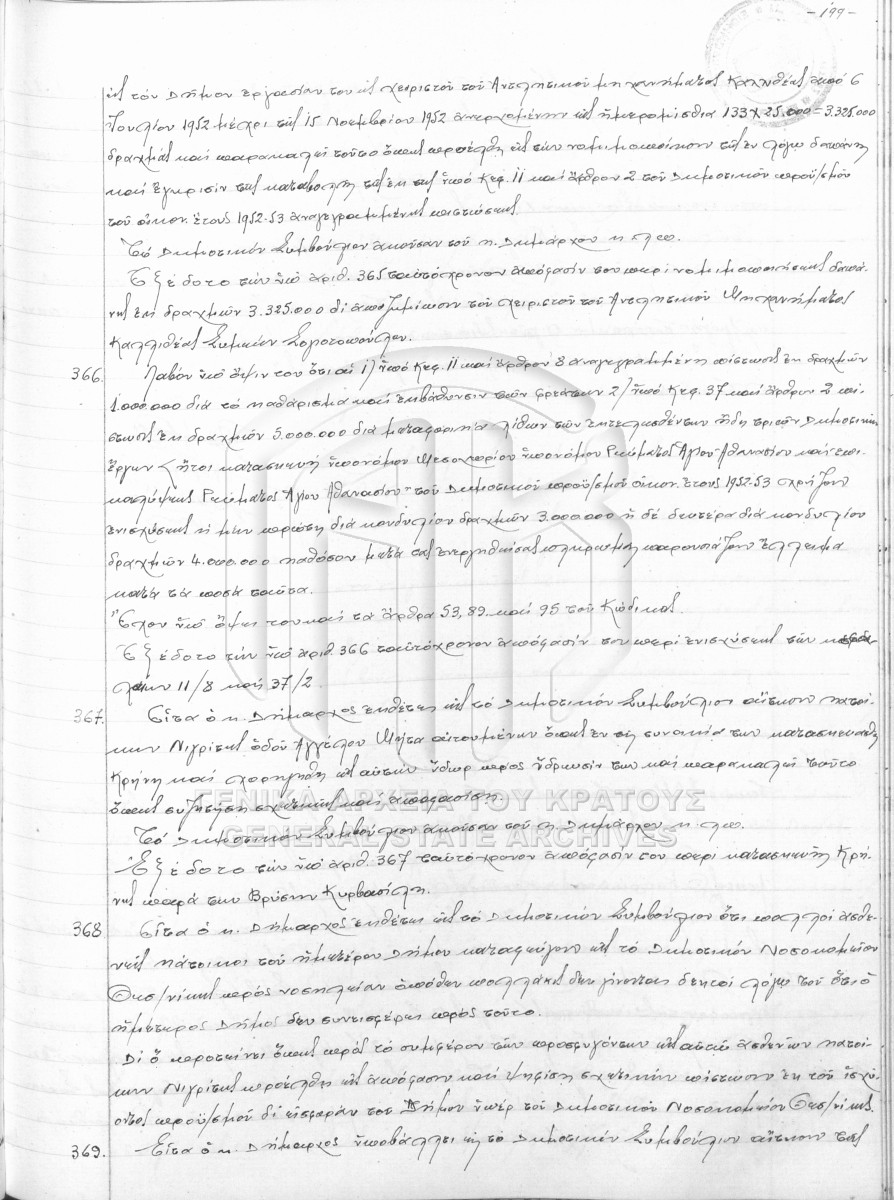 - 199 -
εἰς τόν Δῆμον ἐργασίαν του ὡς χειριστοῦ τοῦ Ἀντλητικοῦ μηχανήματος Καλλιθέας ἀπό 6
Ἰουλίου 1952 μέχρι τῆς 15 Νοεμβρίου 1952 ἀνερχομένην εἰς ἡμερομίσθια 133 Χ 25.000 = 3.325.000
δραχμάς καί παρακαλεῖ τοῦτο ὅπως προέλθῃ εἰς τήν νομιμοποίησιν τῆς ἐν λόγῳ δαπάνης
καί ἔγκρισιν τῆς καταβολῆς της ἐκ τῆς ὑπό Κεφ. 11 καί ἄρθρον 2 τοῦ Δημοτικοῦ προϋ/σμοῦ
τοῦ οἰκον. ἔτους 1952-53 ἀναγεγραμμένης πιστώσεως.
Τό Δημοτικόν Συμβούλιον ἀκοῦσαν τοῦ κ. Δημάρχου κ.λπ.
Ἐξέδοτο τήν ὑπ' ἀριθ. 365 ταυτόχρονον ἀπόφασίν του περί νομιμοποιήσεως δαπά-
νης ἐκ δραχμῶν 3.325.000 δι' ἀποζημίωσιν τοῦ χειριστοῦ τοῦ Ἀντλητικοῦ Μηχανήματος
Καλλιθέας
366. Λαβόν ὑπ' ὄψιν του ὅτι αἱ 1) ὑπό Κεφ. 11 καί ἄρθρον 8 ἀναγεγραμμένη πίστωσις ἐκ δραχμῶν
1.000.000 διά τό καθάρισμα καί ἐκβάθυνσιν τῶν φρεάτων 2/ ὑπό Κεφ. 37 καί ἄρθρον 2 πί-
στωσις ἐκ δραχμῶν 5.000.000 διά μεταφορικά λίθων τῶν ἐκτελεσθέντων ἤδη τριῶν Δημοτικῶν
ἔργων ἤτοι κατασκευή ὑπονόμου Μεσοχωρίου ὑπονόμου Ρεύματος Ἁγίου Ἀθανασίου καί ἐπι-
καλύψεως Ρεύματος Ἁγίου Ἀθανασίου τοῦ Δημοτικοῦ προϋ/σμοῦ οἰκον. ἔτους 1952-53 χρήζουν
ἐνισχύσεως ἡ μέν πρώτη διά κονδυλίου δραχμῶν 3.000.000 ἡ δέ δευτέρα διά κονδυλίου
δραχμῶν 4.000.000 καθόσον μετά τάς ἐνεργηθείσας πληρωμάς παρουσιάζουν ἔλλειμα
κατά τά ποσά ταῦτα.
Ἔχον ὑπ' ὄψει του καί τά ἄρθρα 53, 89 καί 95 τοῦ Κώδικος.
Ἐξέδοτο τήν ὑπ' ἀριθ. 366 ταυτόχρονον ἀπόφασίν του περί ἐνισχύσεως τῶν κεφα-
λαίων 11/8 καί 37/2.
367. Εἶτα ὁ κ. Δήμαρχος ἐκθέτει εἰς τό Δημοτικόν Συμβούλιον αἴτησιν κατοί-
κων Νιγρίτης ὁδοῦ Ἀγγέλου αἰτουμένων ὅπως ἐν τῇ συνοικίᾳ των κατασκευασθῇ
Κρήνη καί χορηγηθῇ εἰς αὐτούς ὕδωρ πρός ὕδρευσίν των καί παρακαλεῖ τοῦτο
ὅπως συζητήσῃ σχετικῶς καί ἀποφασίσῃ.
Τό Δημοτικόν Συμβούλιον ἀκοῦσαν τοῦ κ. Δημάρχου κ.λπ.
Ἐξέδοτο τήν ὑπ' ἀριθ. 367 ταυτόχρονον ἀπόφασίν του περί κατασκευῆς Κρή-
νης παρά τήν Βρύσην Κυρβασίλη.
368 Εἶτα ὁ κ. Δήμαρχος ἐκθέτει εἰς τό Δημοτικόν Συμβούλιον ὅτι πολλοί ἀσθε-
νεῖς κάτοικοι τοῦ ἡμετέρου Δήμου καταφεύγουν εἰς τό Δημοτικόν Νοσοκομεῖον
Θεσ/νίκης πρός νοσηλείαν ὁπόθεν πολλάκις δέν γίνονται δεκτοί λόγῳ τοῦ ὅτι ὁ
ἡμέτερος Δῆμος δέν συνεισφέρει πρός τοῦτο.
Δι' ὅ προτείνει ὅπως πρός τό συμφέρον τῶν προσφυγόντων εἰς αὐτό ἀσθενῶν κατοί-
κων Νιγρίτης προέλθῃ εἰς ἀπόφασιν καί ψηφίσῃ σχετικήν πίστωσιν ἐκ τοῦ ἰσχύ-
οντος προϋ/σμοῦ δι' εἰσφοράν τοῦ Δήμου ὑπέρ τοῦ Δημοτικοῦ Νοσοκομείου Θεσ/νίκης.
369. Εἶτα ὁ κ. Δήμαρχος ὑποβάλλει εἰς τό Δημοτικόν Συμβούλιον αἴτησιν τῆς
ΓΕΝΙΚΑ ΑΡΧΕΙΑ ΤΟΥ ΚΡΑΤΟΥΣ
GENERAL STATE ARCHIVES